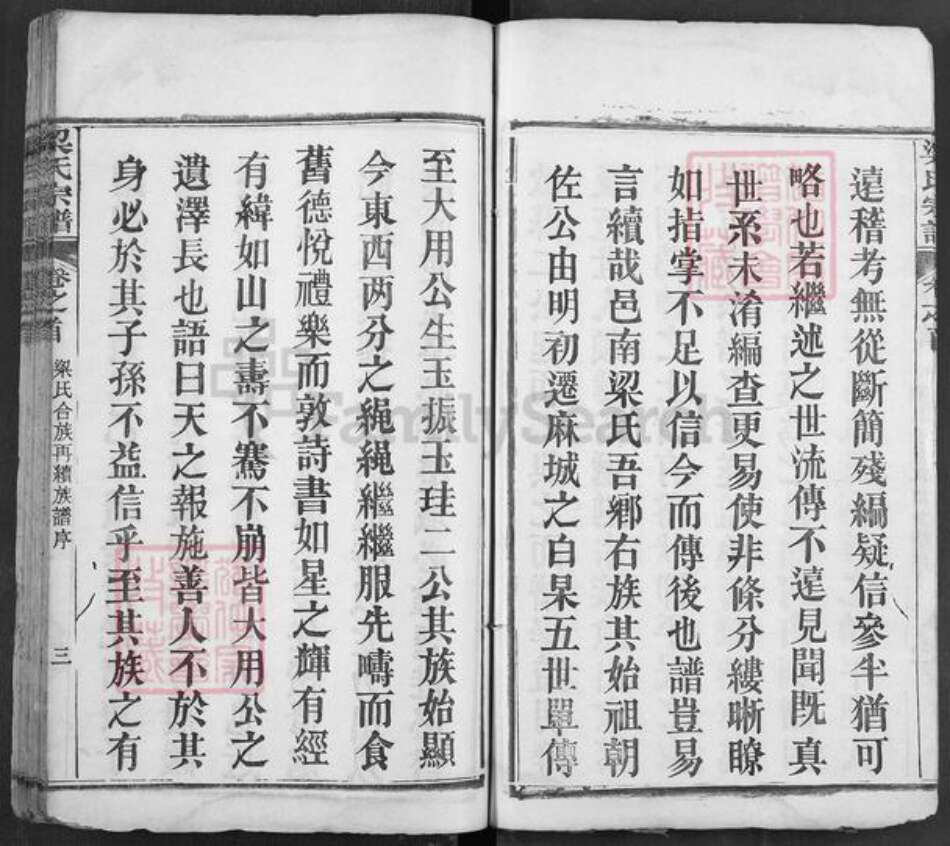 遠稽考無從斷簡殘編疑信參半猶可
略也若繼述之世流傳不遠見聞既真
世系未淆編查更易使非條分縷晰瞭
如指掌不足以信今而傳後也譜豈易
言續哉邑南梁氏吾鄉右族其始祖朝
佐公由明初遷麻城之白杲五世單傳
至大用公生玉振玉珪二公其族始顯
今東西两分之繩繩繼繼服先疇而食
舊德悅禮樂而敦詩書如星之輝有經
有緯如山之壽不騫不崩皆大用公之
遺澤長也語曰天之報施善人不於其
身必於其子孫不益信乎至其族之有
梁氏宗譜
卷之首
梁氏合族再續族譜序
三
FamilySearch